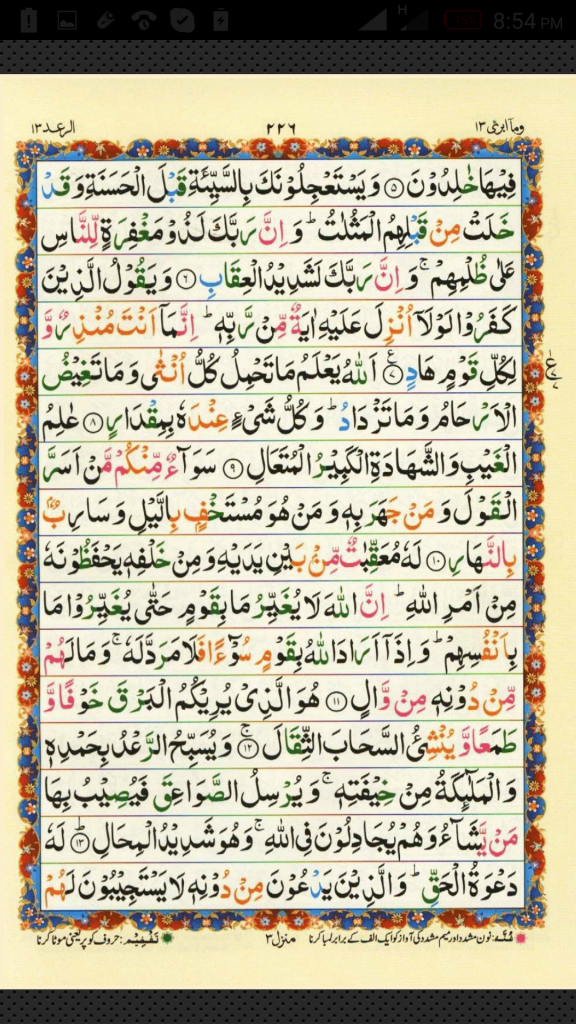 H 15% 8:54 PM
الرعد ١٣ ٢٢٦ وما ابرئ ١٣
فِيْهَا خٰلِدُوْنَ ۝٥ وَيَسْتَعْجِلُوْنَكَ بِالسَّيِّئَةِ قَبْلَ الْحَسَنَةِ وَقَدْ
خَلَتْ مِنْ قَبْلِهِمُ الْمَثُلٰتُ ؕ وَاِنَّ رَبَّكَ لَذُوْ مَغْفِرَةٍ لِّلنَّاسِ
عَلٰى ظُلْمِهِمْ ۚ وَاِنَّ رَبَّكَ لَشَدِيْدُ الْعِقَابِ ۝٦ وَيَقُوْلُ الَّذِيْنَ
كَفَرُوْا لَوْلَاۤ اُنْزِلَ عَلَيْهِ اٰيَةٌ مِّنْ رَّبِّهٖ ؕ اِنَّمَاۤ اَنْتَ مُنْذِرٌ وَّ
لِكُلِّ قَوْمٍ هَادٍ ۝٧ اَللّٰهُ يَعْلَمُ مَا تَحْمِلُ كُلُّ اُنْثٰى وَمَا تَغِيْضُ
الْاَرْحَامُ وَمَا تَزْدَادُ ؕ وَكُلُّ شَيْءٍ عِنْدَهٗ بِمِقْدَارٍ ۝٨ عٰلِمُ
الْغَيْبِ وَالشَّهَادَةِ الْكَبِيْرُ الْمُتَعَالِ ۝٩ سَوَآءٌ مِّنْكُمْ مَّنْ اَسَرَّ
الْقَوْلَ وَمَنْ جَهَرَ بِهٖ وَمَنْ هُوَ مُسْتَخْفٍ بِالَّيْلِ وَسَارِبٌۢ
بِالنَّهَارِ ۝١٠ لَهٗ مُعَقِّبٰتٌ مِّنْۢ بَيْنِ يَدَيْهِ وَمِنْ خَلْفِهٖ يَحْفَظُوْنَهٗ
مِنْ اَمْرِ اللّٰهِ ؕ اِنَّ اللّٰهَ لَا يُغَيِّرُ مَا بِقَوْمٍ حَتّٰى يُغَيِّرُوْا مَا
بِاَنْفُسِهِمْ ؕ وَاِذَاۤ اَرَادَ اللّٰهُ بِقَوْمٍ سُوْٓءًا فَلَا مَرَدَّ لَهٗ ۚ وَمَا لَهُمْ
مِّنْ دُوْنِهٖ مِنْ وَّالٍ ۝١١ هُوَ الَّذِيْ يُرِيْكُمُ الْبَرْقَ خَوْفًا وَّ
طَمَعًا وَّيُنْشِئُ السَّحَابَ الثِّقَالَ ۝١٢ وَيُسَبِّحُ الرَّعْدُ بِحَمْدِهٖ
وَالْمَلٰٓئِكَةُ مِنْ خِيْفَتِهٖ ۚ وَيُرْسِلُ الصَّوَاعِقَ فَيُصِيْبُ بِهَا
مَنْ يَّشَآءُ وَهُمْ يُجَادِلُوْنَ فِي اللّٰهِ ۚ وَهُوَ شَدِيْدُ الْمِحَالِ ۝١٣ لَهٗ
دَعْوَةُ الْحَقِّ ؕ وَالَّذِيْنَ يَدْعُوْنَ مِنْ دُوْنِهٖ لَا يَسْتَجِيْبُوْنَ لَهُمْ
غُنَّه: نون مشدد اور میم مشدد کی آواز کو ایک الف کے برابر لمبا کرنا منزل ٣ تَفْخِيْم: حروف کو پُر یعنی موٹا کرنا